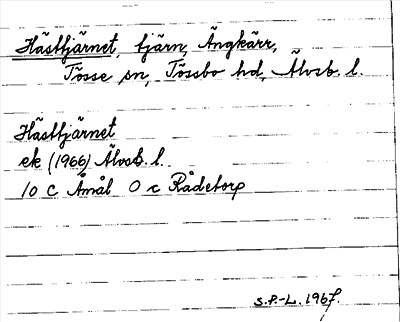 Hästtjärnet, tjärn, Ängkärr,
Tösse sn, Tössbo hd, Älvsb. l.
Hästtjärnet
ek (1966) Älvsb. l.
10 C Åmål 0 c Rådetorp
S.P.-L. 1967.